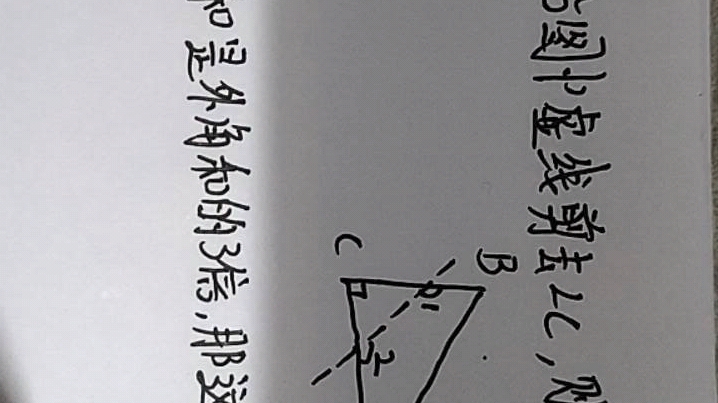 图中虚线剪去∠C,则
B
C
1
2
和是外角和的3倍,那这